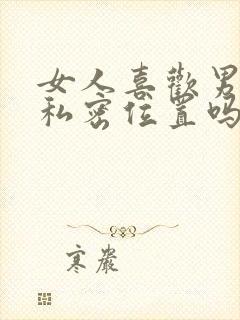 女人喜歡男
私密位置吗
寒嚴